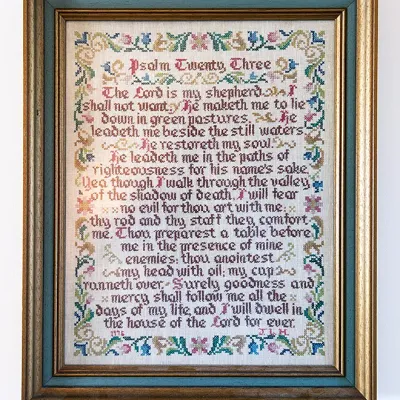 Psalm Twenty, Three
The Lord is my shepherd I
shall not want; He maketh me to lie
down in green pastures. He
leadeth me beside the still waters
He restoreth my soul.
He leadeth me in the paths of
righteousness for his name's sake.
Yea though I walk through the valley
of the shadow of death, I will fear
no evil for thou art with me;
thy rod and thy staff they comfort
me. Thou preparest a table before
me in the presence of mine
enemies; thou anointest
my head with oil; my cup
runneth over. Surely goodness and
mercy shall follow me all the
days of my life, and I will dwell in
the house of the Lord for ever.
J.L.H.